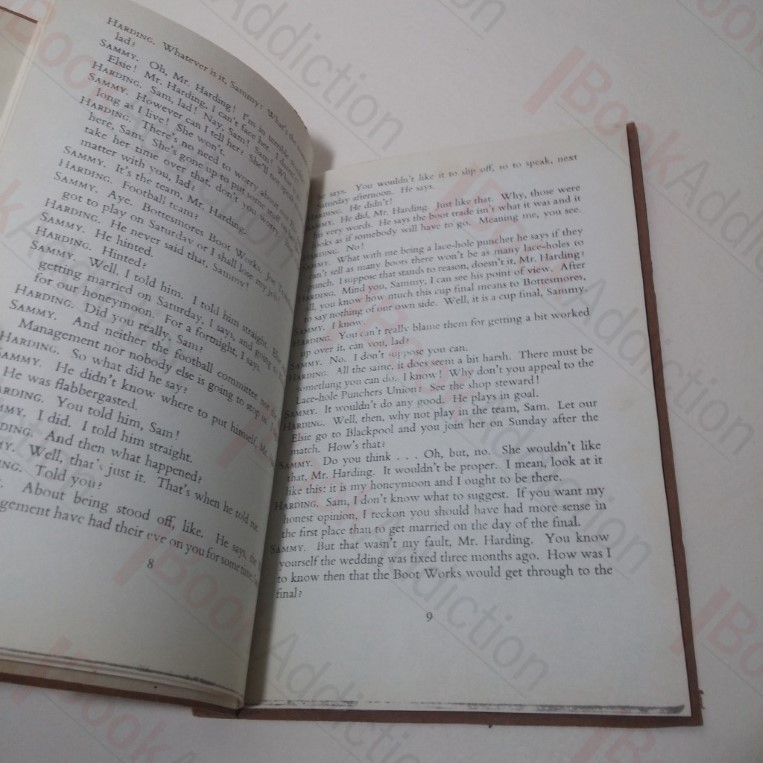 HARDING. Whatever is it, Sammy? What's the
lad?
SAMMY. Oh, Mr. Harding! I'm in terrible
Elsie! Mr. Harding, I can't face her. I
HARDING. Sam, lad! Nay, Sam! Sam!
SAMMY. However can I tell her? She'll
long as I live! She won't.
HARDING. There's no need to worry about
here, Sam. She's gone up to put some stuff
take her time over that, don't you worry.
matter with you, lad?
SAMMY. It's the team, Mr. Harding.
HARDING. Football team?
SAMMY. Aye. Bottesmores Boot Works. Joe
got to play on Saturday or I shall lose my job!
HARDING. He never said that, Sammy!
SAMMY. He hinted.
HARDING. Hinted?
SAMMY. Well, I told him. I told him straight.
getting married on Saturday, I says, and going
for our honeymoon. For a fortnight, I says.
HARDING. Did you really, Sam?
SAMMY. And neither the football committee nor the
Management nor nobody else is going to stop us.
HARDING. So what did he say?
SAMMY. He didn't know where to put himself, Mr.
He was flabbergasted.
HARDING. You told him, Sam!
SAMMY. I did. I told him straight.
HARDING. And then what happened?
SAMMY. Well, that's just it. That's when he told me.
HARDING. Told you?
SAMMY. About being stood off, like. He says, the
Management have had their eye on you for some time
8
he says. You wouldn't like it to slip off, so to speak, next
Saturday afternoon. He says.
HARDING. He didn't!
SAMMY. He did, Mr. Harding. Just like that. Why, those were
his very words. He says the boot trade isn't what it was and it
looks as if somebody will have to go. Meaning me, you see.
HARDING. No!
SAMMY. What with me being a lace-hole puncher he says if they
can't sell as many boots there won't be as many lace-holes to
punch. I suppose that stands to reason, doesn't it, Mr. Harding?
HARDING. Mind you, Sammy, I can see his point of view. After
all, you know how much this cup final means to Bottesmores,
to say nothing of our own side. Well, it is a cup final, Sammy.
SAMMY. I know.
HARDING. You can't really blame them for getting a bit worked
up over it, can you, lad?
SAMMY. No. I don't suppose you can.
HARDING. All the same, it does seem a bit harsh. There must be
something you can do. I know! Why don't you appeal to the
Lace-hole Punchers Union? See the shop steward!
SAMMY. It wouldn't do any good. He plays in goal.
HARDING. Well, then, why not play in the team, Sam. Let our
Elsie go to Blackpool and you join her on Sunday after the
match. How's that?
SAMMY. Do you think . . . Oh, but, no. She wouldn't like
that, Mr. Harding. It wouldn't be proper. I mean, look at it
like this: it is my honeymoon and I ought to be there.
HARDING. Sam, I don't know what to suggest. If you want my
honest opinion, I reckon you should have had more sense in
the first place than to get married on the day of the final.
SAMMY. But that wasn't my fault, Mr. Harding. You know
yourself the wedding was fixed three months ago. How was I
to know then that the Boot Works would get through to the
final?
9
BookAddiction